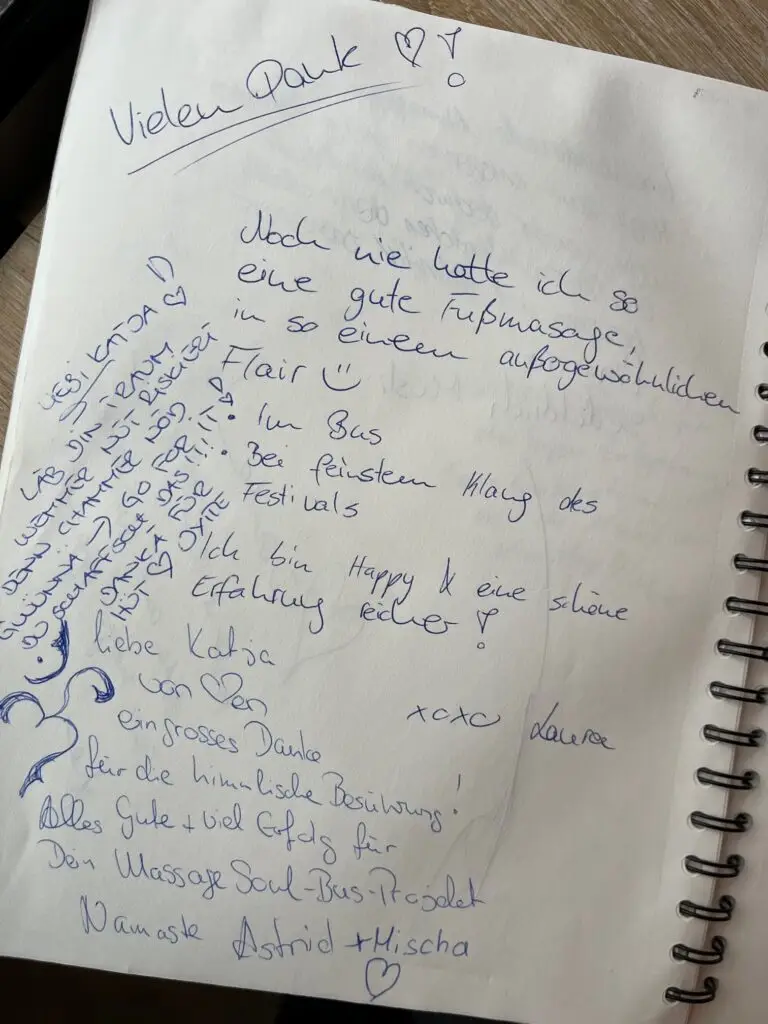 Vielen Dank ♡!
Noch nie hatte ich so
eine gute Fußmasage,
in so einem außogewöhnlichen
Flair ☺
• Im Bus
• Bei feinstem Klang des
Festivals
Ich bin Happy & eine schöne
Erfahrung reicher!
xoxo Laura
LIEBI KATJA ♡
LÄB DIN TRAUM
WEMMER NÜT RISKIERT
DENN CHAMMER NÜD
GWÜNNÄ → GO FOR IT! ♡
DU SCHAFFSCH DAS!!!
DANKÄ FÜR
HÜT ♡
liebe Katja
von ♡en
ein grosses Danke
für die himmlische Berührung!
Alles Gute + viel Erfolg für
Dein Massage Soul-Bus-Projekt
Namaste Astrid + Mischa
♡